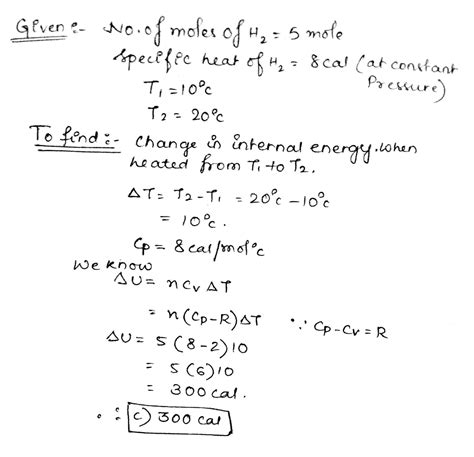 Given :- No. of moles of H₂ = 5 mole
Specific heat of H₂ = 8 cal (at constant Pressure)
T₁ = 10°c
T₂ = 20°c
To find :- Change in internal energy. when
heated from T₁ to T₂.
ΔT = T₂ - T₁ = 20°c - 10°c
= 10°c.
Cp = 8 cal/mol°c
We know
ΔU = nCvΔT
= n(Cp-R)ΔT ∵ Cp-Cv = R
ΔU = 5(8-2)10
= 5(6)10
= 300 cal.
∴ c) 300 cal